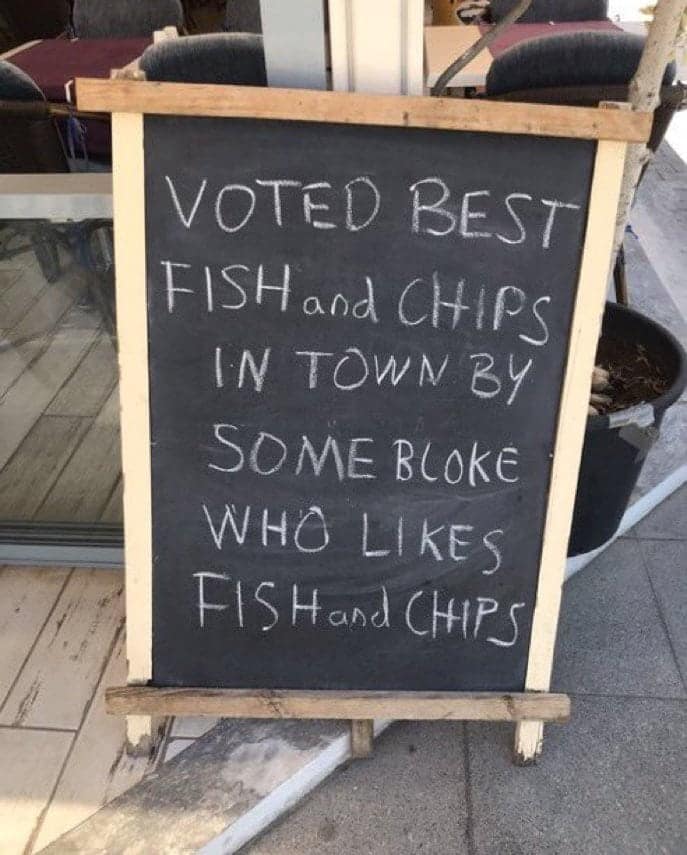 VOTED BEST
FISH and CHIPS
IN TOWN BY
SOME BLOKE
WHO LIKES
FISH and CHIPS